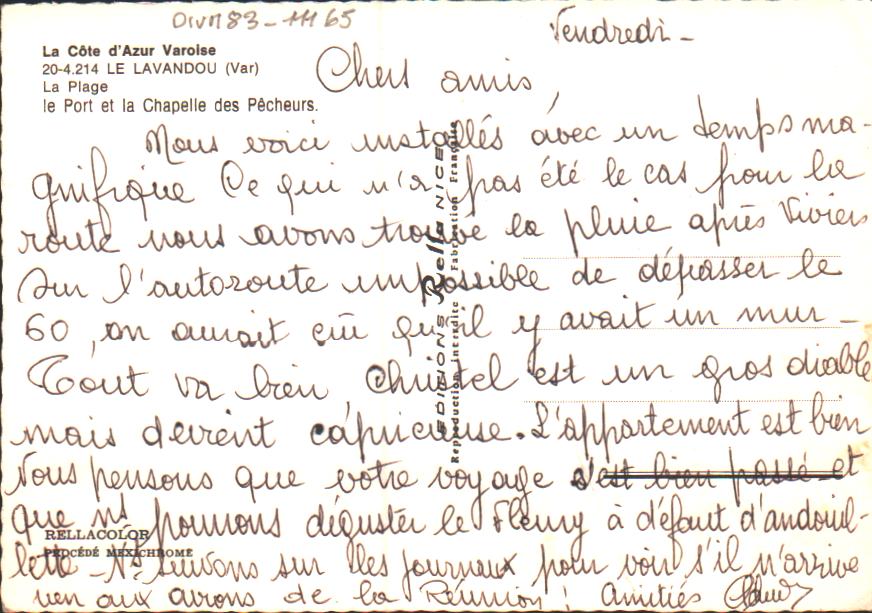 DIVM83-1165
Vendredi -
La Côte d'Azur Varoise
20-4.214 LE LAVANDOU (Var)
La Plage
le Port et la Chapelle des Pêcheurs.
Chers amis,
Nous voici installés avec un temps ma-
gnifique Ce qui n'a pas été le cas pour la
route nous avons trouvé la pluie après Viviers
sur l'autoroute impossible de dépasser le
60, on aurait cru qu'il y avait un mur -
Tout va bien, Christel est un gros diable
mais devient capricieuse. L'appartement est bien
Nous pensons que votre voyage s'est bien passé et
que ns pourrons déguster le Fleury à défaut d'andouil-
lette - Ns suivons sur les journaux pour voir s'il n'arrive
rien aux avions de la Réunion ! Amitiés
EDITIONS Rella NICE
Reproduction Interdite Fabrication Française
RELLACOLOR
PROCÉDÉ MEXICHROME